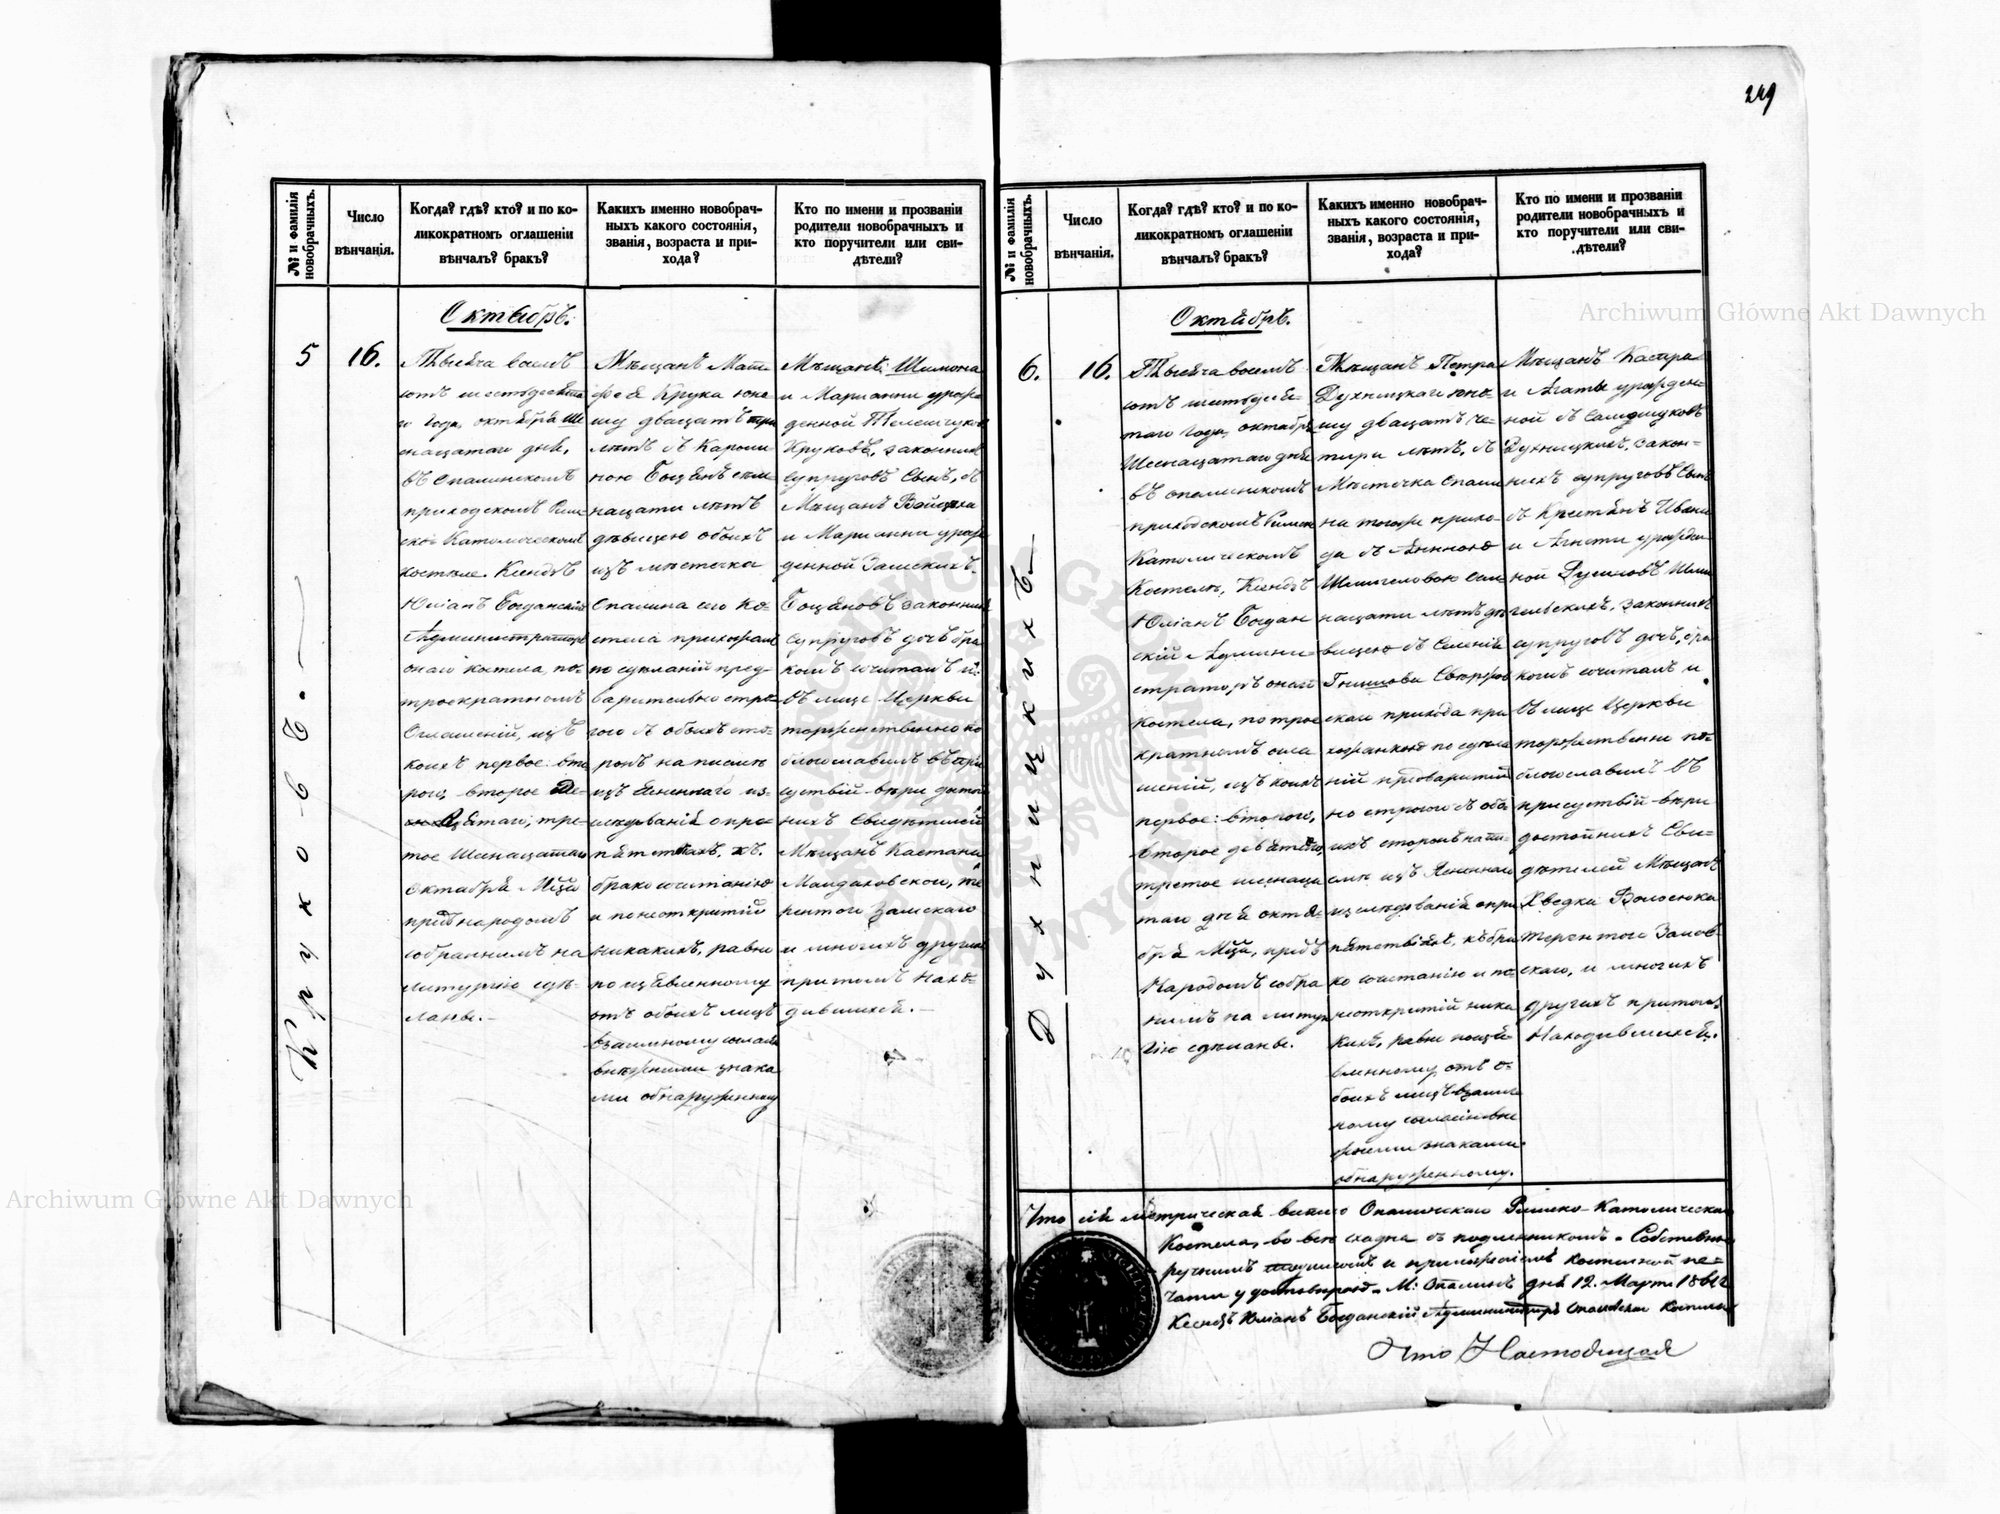 249
№ и фамилія новобрачныхъ.
Число вѣнчанія.
Когда? гдѣ? кто? и по ко-
ликократномъ оглашеніи
вѣнчалъ? бракъ?
Какихъ именно новобрач-
ныхъ какого состоянія,
званія, возраста и при-
хода?
Кто по имени и прозваніи
родители новобрачныхъ и
кто поручители или сви-
дѣтели?
Октябрь.
5
16.
Круковъ.
Тысяча восемъ
сотъ шестьдесята
го года, октября Ше
снацатаго дня,
въ Опалинскомъ
приходскомъ Рим
ско Католическомъ
костеле. Ксендзъ
Юліанъ Богданскій
Администраторъ
онаго костела, по
троекратномъ
Оглашеній, изъ
коихъ первое: вто
раго, второе Де-
вятаго, тре-
тое Шеснацатаго
Октября М-ца
предъ народомъ
собраннимъ на
литургію сдѣ-
ланы.
Мѣщанъ Мат-
фея Крука юно
шу двацатъ три
лѣтъ съ Кароли
ною Боцянъ сем
нацати лѣтъ
дѣвицею обоихъ
изъ мѣстечка
Опалина сего Ко
стела прихожан
по сдѣланій пред-
варительно стро
гого съ обоихъ сто-
ронъ на писмѣ
изъясненнаго из-
слѣдованія о пре-
пятствіяхъ, къ
брако сочитанію
и понеоткритій
никакихъ, равно
по изъявленному
отъ обоихъ лицъ
взаимному согласію
внѣжними знака
ми обнаруженному
Мѣщанъ: Шимона
и Марианни урож
денной Телещуковъ
Круковъ, законнихъ
супруговъ Сынъ, съ
Мѣщанъ Войцѣха
и Марианни урож
денной Замскихъ
Боцяновъ законнихъ
супруговъ дочъ бра
комъ сочиталъ и
въ лице Церкви
торжественно по
благославилъ въ при
сутствій вѣри досто
нихъ Свидѣтелей
Мѣщан Каетана
Майдаховского, Те
рентого Замскаго
и многихъ другихъ
притомъ нахо-
дившихся.
№ и фамилія новобрачныхъ.
Число вѣнчанія.
Когда? гдѣ? кто? и по ко-
ликократномъ оглашеніи
вѣнчалъ? бракъ?
Какихъ именно новобрач-
ныхъ какого состоянія,
званія, возраста и при-
хода?
Кто по имени и прозваніи
родители новобрачныхъ и
кто поручители или сви-
дѣтели?
Октябрь.
6.
16.
Духницкихъ
Тысяча восемъ
сотъ шестьдеся-
таго года, октября
Шеснацатаго дня
въ опалинскомъ
приходскомъ Римско
Католическомъ
Костелѣ, Ксендзъ
Юліанъ Богдан
скій Админи-
страторъ онаго
костела, по трое
кратномъ огла
шеній, изъ коихъ
первое: второго,
второе девятого,
третое шеснаца
таго дня октя-
бря М-ца, предъ
Народомъ собра
нимъ на литур
гію сдѣланы.
Мѣщанъ Петра
Духницкаго юно-
шу двацатъ че-
тири лѣтъ, съ
Мѣстечка Опали
на тогоже прихо-
да съ Анною
сем
нацати лѣтъ дѣ
вицею съ Селенія
прихода при
хожанкою по сдѣла
ній предварител
но строгого съ обо
ихъ сторонъ на пи-
смѣ изъ Ясненнаго
изслѣдованія о пре
пятствіяхъ, къ бра
ко сочитанію и по
неоткритій ника
кихъ, равно по изъя
вленному отъ о-
боихъ лицъ взаим
ному согласію внѣ
жними знаками
обнаруженному.
Мѣщанъ Каспра
и Агаты урожден-
ной
Духницкихъ, закон-
нихъ супруговъ Сынъ
съ Крестянъ Ивана
и Агнети урожден
ной
законнихъ
супруговъ дочъ, бра
комъ сочиталъ и
въ лице Церкви
торжественно по-
благославилъ въ
присутствій вѣри
достойнихъ Сви-
дѣтелей Мѣщанъ
Терентого Замс-
скаго, и многихъ
другихъ притомъ
Находившихся.
Что сія метрическая выпись Опалинскаго Римско-Католическаго
Костела, во всемъ сходна съ подлинникомъ - Собственно
ручнимъ подписомъ и приложеніемъ костелной пе-
чати удостовѣряю. М: Опалинъ дня 12. Марта 1861
Ксендзъ Юліанъ Богданскій Администраторъ Опалинскаго Костела
Что Настоящая
Archiwum Główne Akt Dawnych
Archiwum Główne Akt Dawnych
ARCHIWUM GŁÓWNE AKT DAWNYCH